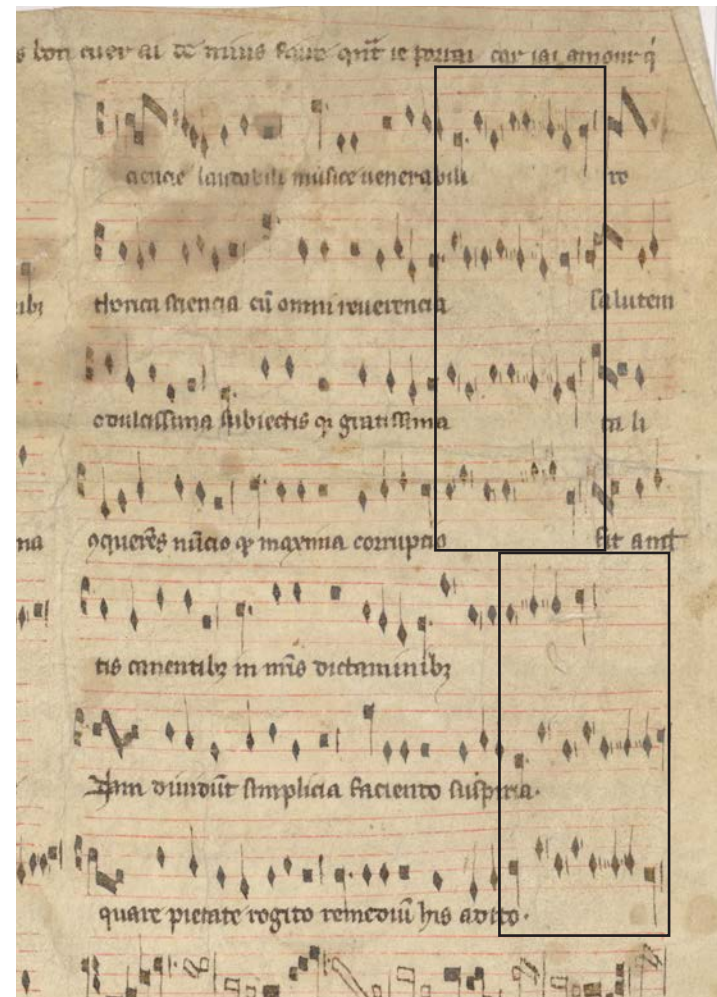 s bon cuer ai de mius q̄nt ie car iai amour q̄
laudabili musice venerabili ro
ibz thorica sciencia cū omni reverencia salutem
o dulcissima subiectis qȝ gratissima ta li
na oquerēs nūcio qȝ maxima corruptio sit
tis canentibȝ in dictaminibȝ
diuidūt simplicia faciento suspiria.
quare pietate rogito remediū his addito.